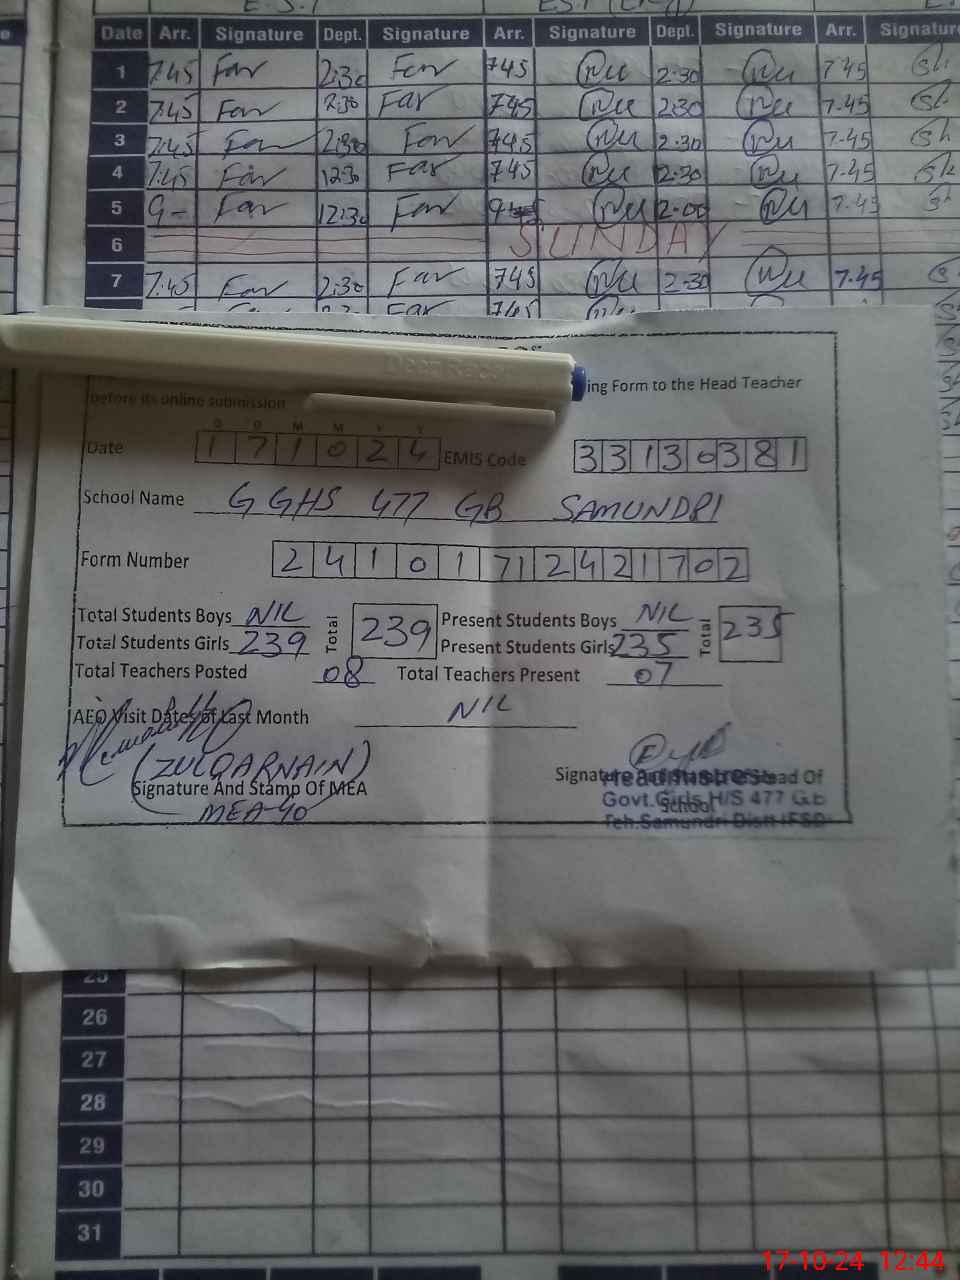 E.S.T
Date Arr. Signature Dept. Signature Arr. Signature Dept. Signature Arr. Signature
1 7.45 Far 2:30 Far 745 Nu 2:30 Nu 7.45 Sh
2 7.45 Far 2:30 Far 745 Nu 2:30 Nu 7.45 Sh
3 7.45 Far 2:30 Far 745 Nu 2:30 Nu 7.45 Sh
4 7.45 Far 12:30 Far 745 Nu 2:30 Nu 7.45 Sh
5 9- Far 12:30 Far Nu 2:00 Nu 7.45 Sh
6 SUNDAY
7 7.45 Far 2:30 Far 745 Nu 2:30 Nu 7.45
ing Form to the Head Teacher
before its online submission
D D M M Y Y
Date 1 7 1 0 2 4 EMIS Code 3 3 1 3 0 3 8 1
School Name G GHS 477 GB SAMUNDRI
Form Number 2 4 1 0 1 7 1 2 4 2 1 7 0 2
Total Students Boys NIL Total 239 Present Students Boys NIL Total 235
Total Students Girls 239 Present Students Girls 235
Total Teachers Posted 08 Total Teachers Present 07
AEO Visit Dates of Last Month NIL
(ZULQARNAIN)
Signature And Stamp Of MEA
MEA-40
Signature And Stamp Of Head Of
School
Headmistress
Govt.Girls H/S 477 Gb
Teh.Samundri Distt FSD
25
26
27
28
29
30
31
17-10-24 12:44